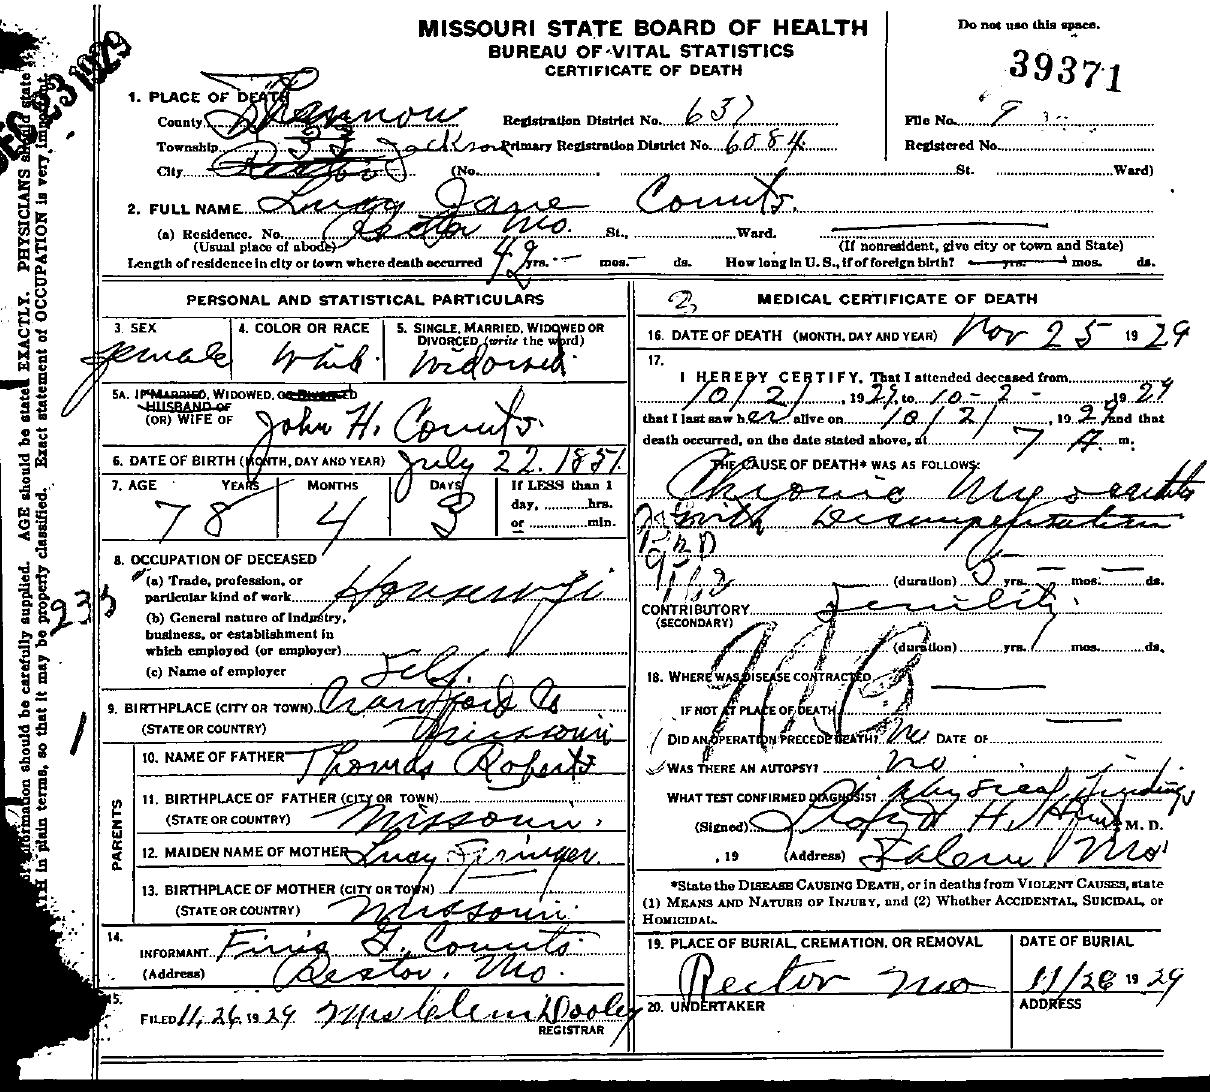 MISSOURI STATE BOARD OF HEALTH
BUREAU OF VITAL STATISTICS
CERTIFICATE OF DEATH
Do not use this space.
39371
DEC 23 1929
1. PLACE OF DEATH
County Shannon Registration District No. 637 File No. 9
Township 33 Jackson Primary Registration District No. 6084 Registered No.
City Rector (No. St. Ward)
2. FULL NAME Lucy Jane Counts.
(a) Residence. No. Rector Mo. St., Ward.
(Usual place of abode) (If nonresident, give city or town and State)
Length of residence in city or town where death occurred 49 yrs. — mos. — ds. How long in U. S., if of foreign birth? yrs. mos. ds.
PERSONAL AND STATISTICAL PARTICULARS
3. SEX 4. COLOR OR RACE 5. SINGLE, MARRIED, WIDOWED OR
DIVORCED (write the word)
female White Widowed
5A. IF MARRIED, WIDOWED, OR DIVORCED
HUSBAND OF
(OR) WIFE OF John H. Counts.
6. DATE OF BIRTH (MONTH, DAY AND YEAR) July 22. 1851.
7. AGE YEARS MONTHS DAYS If LESS than 1
day, hrs.
or min.
78 4 3
8. OCCUPATION OF DECEASED
(a) Trade, profession, or
particular kind of work Housewife
(b) General nature of industry,
business, or establishment in
which employed (or employer)
(c) Name of employer Self.
9. BIRTHPLACE (CITY OR TOWN) Crawford Co
(STATE OR COUNTRY) Missouri
PARENTS
10. NAME OF FATHER Thomas Roberts
11. BIRTHPLACE OF FATHER (CITY OR TOWN)
(STATE OR COUNTRY) Missouri.
12. MAIDEN NAME OF MOTHER Lucy Springer
13. BIRTHPLACE OF MOTHER (CITY OR TOWN)
(STATE OR COUNTRY) Missouri.
14.
INFORMANT Finis G. Counts.
(Address) Rector, Mo.
15.
FILED 11, 26, 1929 Mrs Clem Dooley
REGISTRAR
2
MEDICAL CERTIFICATE OF DEATH
16. DATE OF DEATH (MONTH, DAY AND YEAR) Nov 25 1929
17.
I HEREBY CERTIFY, That I attended deceased from
10/21, 1929, to 10-2-, 1929
that I last saw her alive on 10/21, 1929 and that
death occurred, on the date stated above, at 7 A. m.
THE CAUSE OF DEATH* WAS AS FOLLOWS:
Chronic Myocarditis
with Decompensation
(duration) yrs. — mos. — ds.
CONTRIBUTORY Senility.
(SECONDARY)
(duration) yrs. mos. ds.
18. WHERE WAS DISEASE CONTRACTED
IF NOT AT PLACE OF DEATH
DID AN OPERATION PRECEDE DEATH? No DATE OF
WAS THERE AN AUTOPSY? no
WHAT TEST CONFIRMED DIAGNOSIS? Physical findings
(Signed) H. M. D.
, 19 (Address) Salem, Mo.
*State the DISEASE CAUSING DEATH, or in deaths from VIOLENT CAUSES, state
(1) MEANS AND NATURE OF INJURY, and (2) Whether ACCIDENTAL, SUICIDAL, or
HOMICIDAL.
19. PLACE OF BURIAL, CREMATION, OR REMOVAL DATE OF BURIAL
Rector Mo 11/26 1929
20. UNDERTAKER ADDRESS
information should be carefully supplied. AGE should be stated EXACTLY. PHYSICIANS should state
in plain terms, so that it may be properly classified. Exact statement of OCCUPATION is very important.